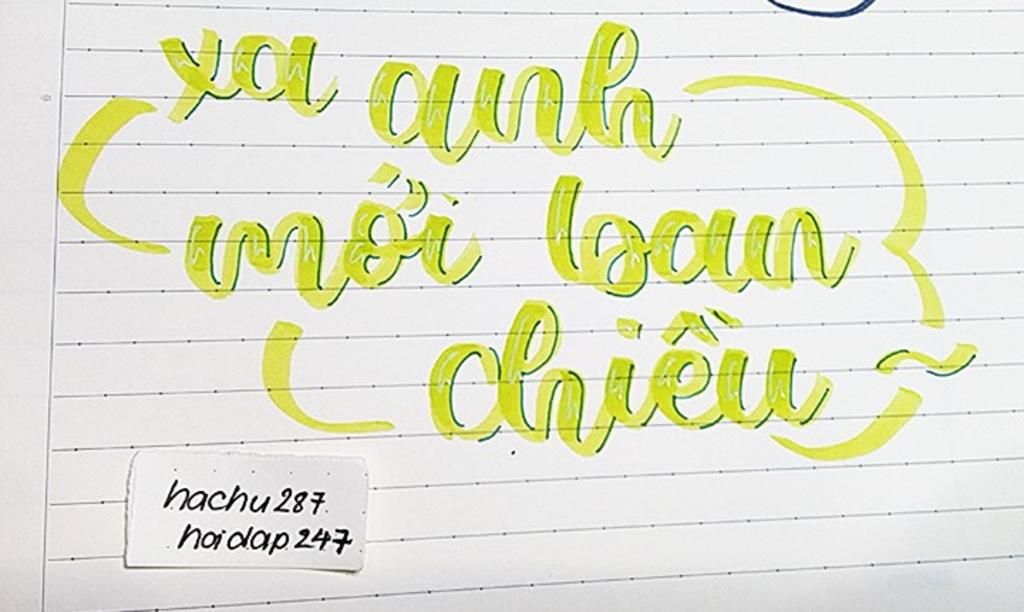 xa anh
mới ban
chiều ~
hachu287
hoidap247